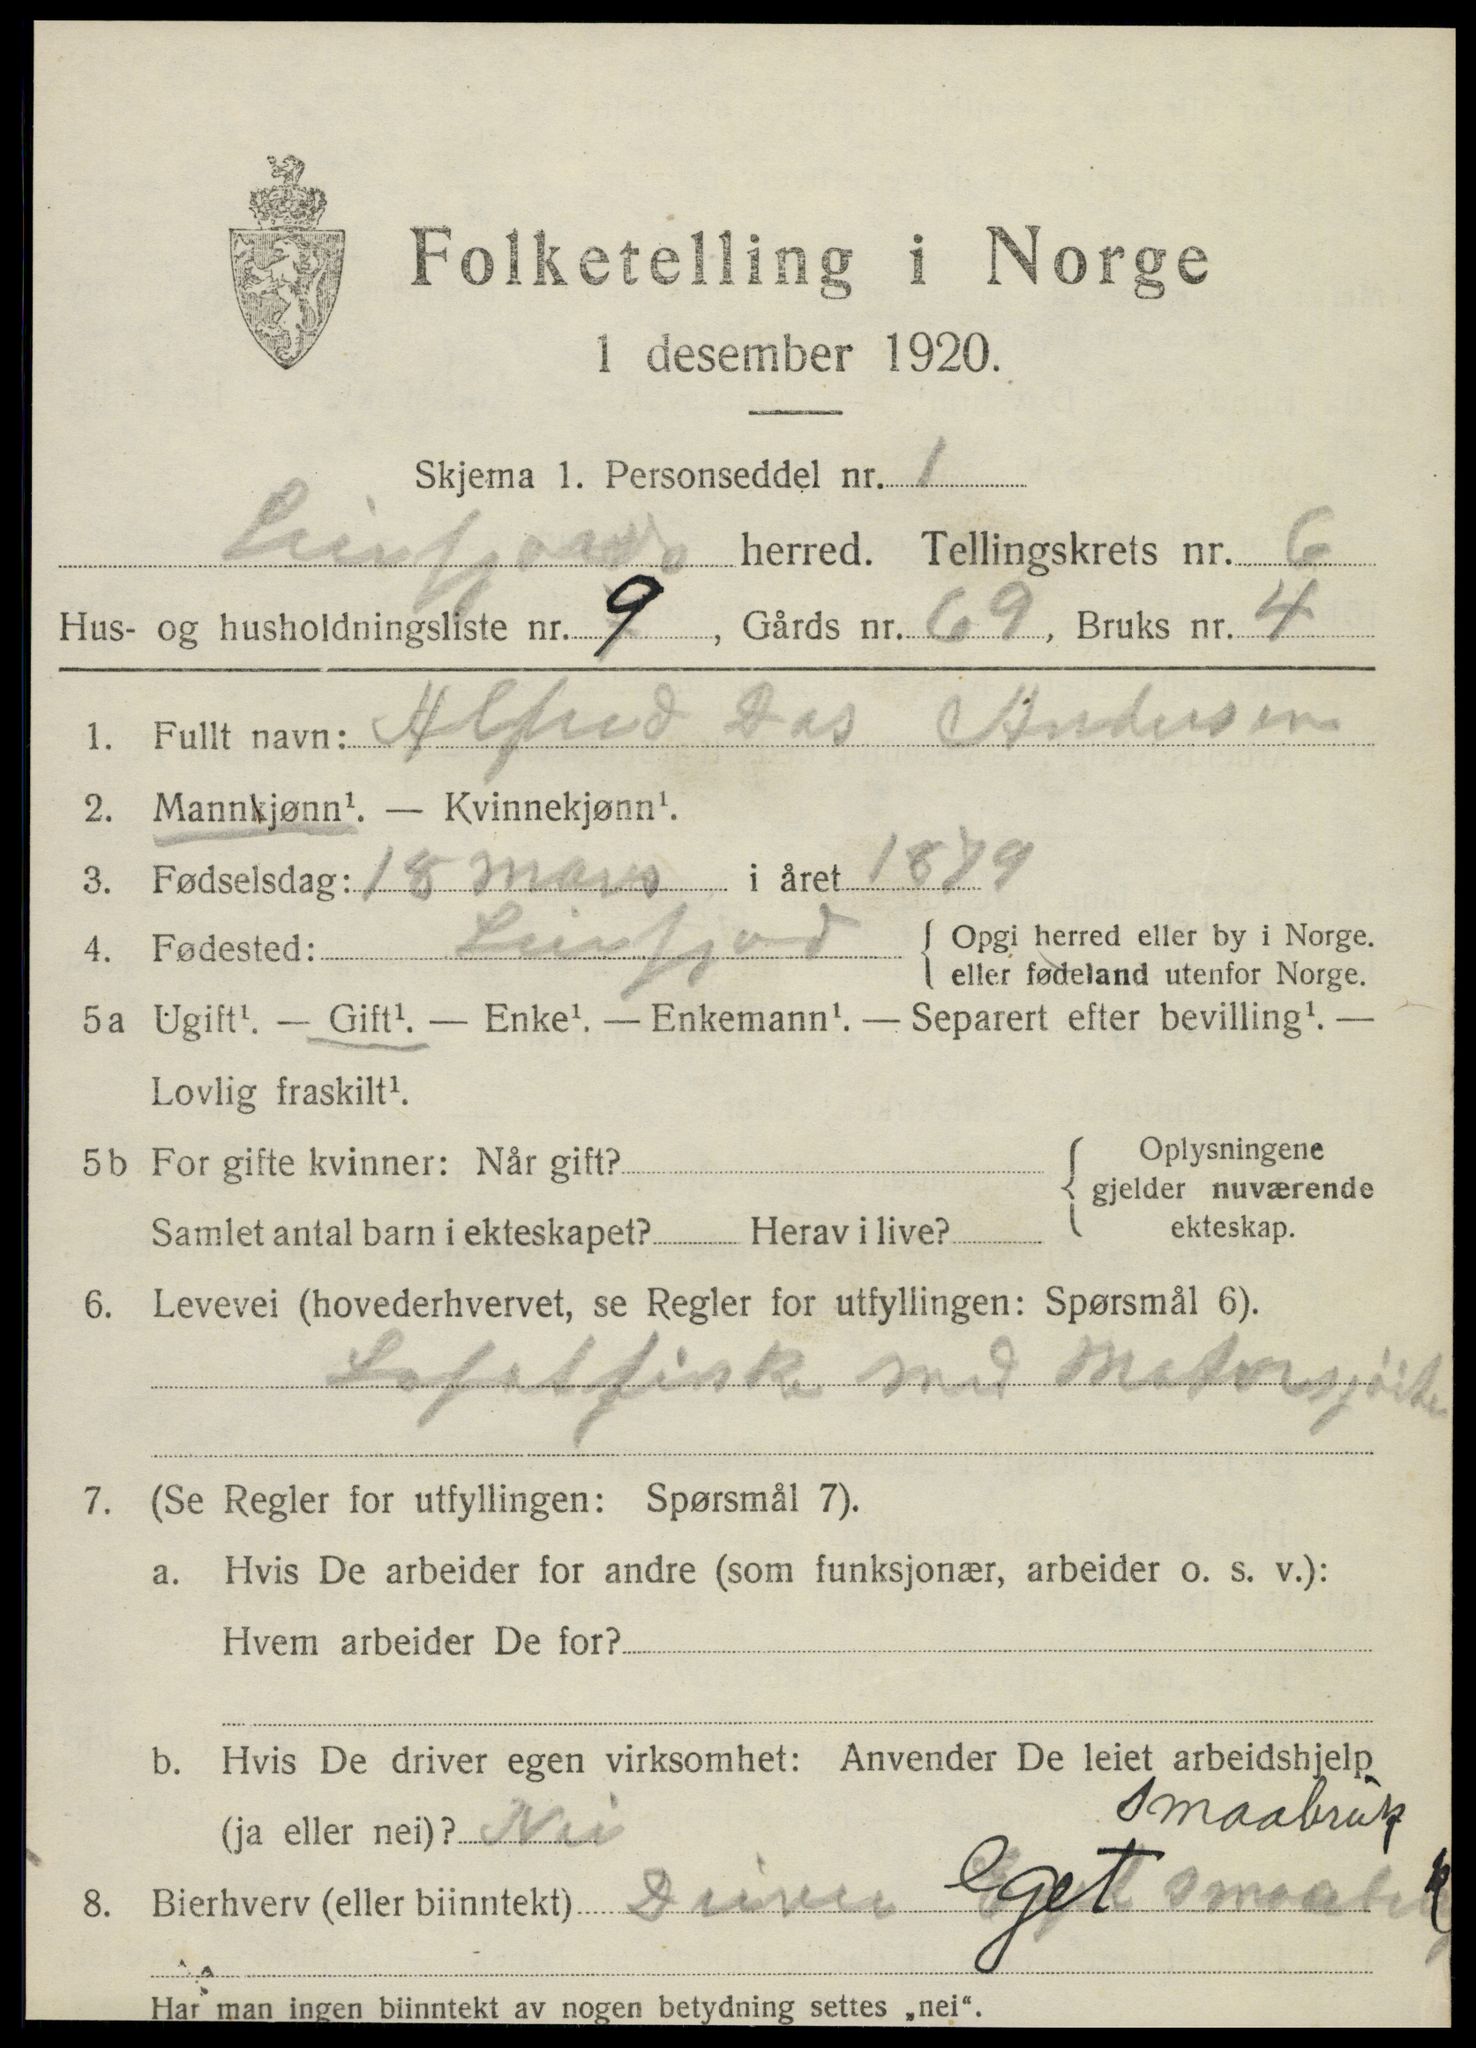 Folketelling i Norge
1 desember 1920.
Skjema 1. Personseddel nr. 1
Leirfjord herred. Tellingskrets nr. 6
Hus- og husholdningsliste nr. 9, Gårds nr. 69, Bruks nr. 4
1. Fullt navn: Alfred Das Andersen
2. Mannkjønn¹. — Kvinnekjønn¹.
3. Fødselsdag: 18 Mars i året 1879
4. Fødested: Leirfjord { Opgi herred eller by i Norge.
eller fødeland utenfor Norge.
5a Ugift¹. — Gift¹. — Enke¹. — Enkemann¹. — Separert efter bevilling¹. —
Lovlig fraskilt¹.
5b For gifte kvinner: Når gift? { Oplysningene
gjelder nuværende
Samlet antal barn i ekteskapet? Herav i live? ekteskap.
6. Levevei (hovederhvervet, se Regler for utfyllingen: Spørsmål 6).
Lofotfiske med Motorsjöite
7. (Se Regler for utfyllingen: Spørsmål 7).
a. Hvis De arbeider for andre (som funksjonær, arbeider o. s. v.):
Hvem arbeider De for?
b. Hvis De driver egen virksomhet: Anvender De leiet arbeidshjelp
(ja eller nei)? Nei smaabruk
8. Bierhverv (eller biinntekt) Driver Eget smaabruk
Har man ingen biinntekt av nogen betydning settes „nei“.